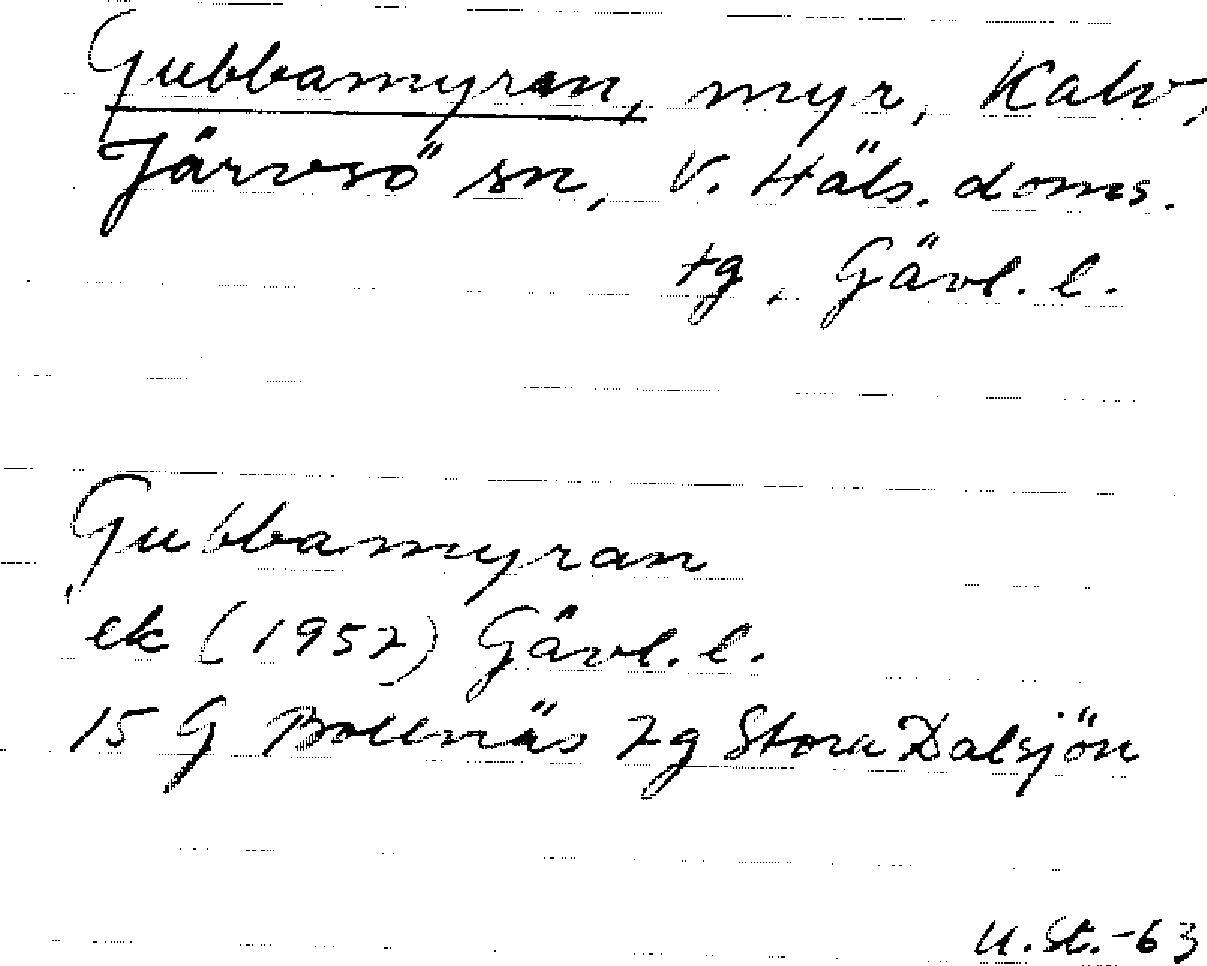 Gubbamyran, myr, Kalv,
Järvsö sn, V. Häls. doms.
tg, Gävl. l.
Gubbamyran
ek (1957) Gävl. l.
15 G Bollnäs 7g Stora Dalsjön
U. St. -63